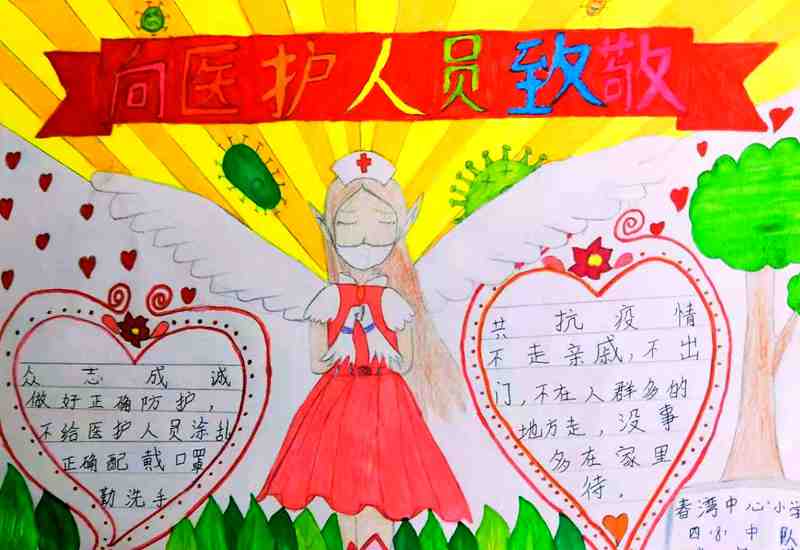 向医护人员致敬
众志成诚
做好正确防护，
不给医护人员涂乱
正确配戴口罩
勤洗手
共抗疫情
不走亲戚，不出
门，不在人群多的
地方走，没事
多在家里
待．
春湾中心小学
中队